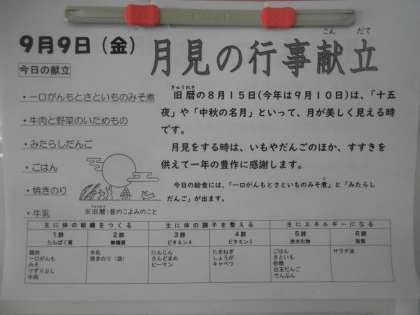 9月9日（金）
月見の行事献立
こん だて
今日の献立
・一口がんもとさといものみそ煮
・牛肉と野菜のいためもの
・みたらしだんご
・ごはん
・焼きのり
・牛乳
きゅうれき
旧暦の8月15日(今年は9月10日)は、「十五
夜」や「中秋の名月」といって、月が美しく見える時
です。
月見をする時は、いもやだんごのほか、すすきを
供えて一年の豊作に感謝します。
今日の給食には、「一口がんもとさといものみそ煮」と「みたらし
だんご」が出ます。
※旧暦：昔のこよみのこと
主に体の組織をつくる 主に体の調子を整える 主にエネルギーになる
1群 2群 3群 4群 5群 6群
たんぱく質 無機質 ビタミンA ビタミンC 炭水化物 脂質
鶏肉
一口がんも
みそ
つずりぶし
牛肉
牛乳
焼きのり（袋）
にんじん
さんどまめ
ピーマン
たまねぎ
しょうが
キャベツ
ごはん
さといも
砂糖
白玉だんご
でんぷん
サラダ油